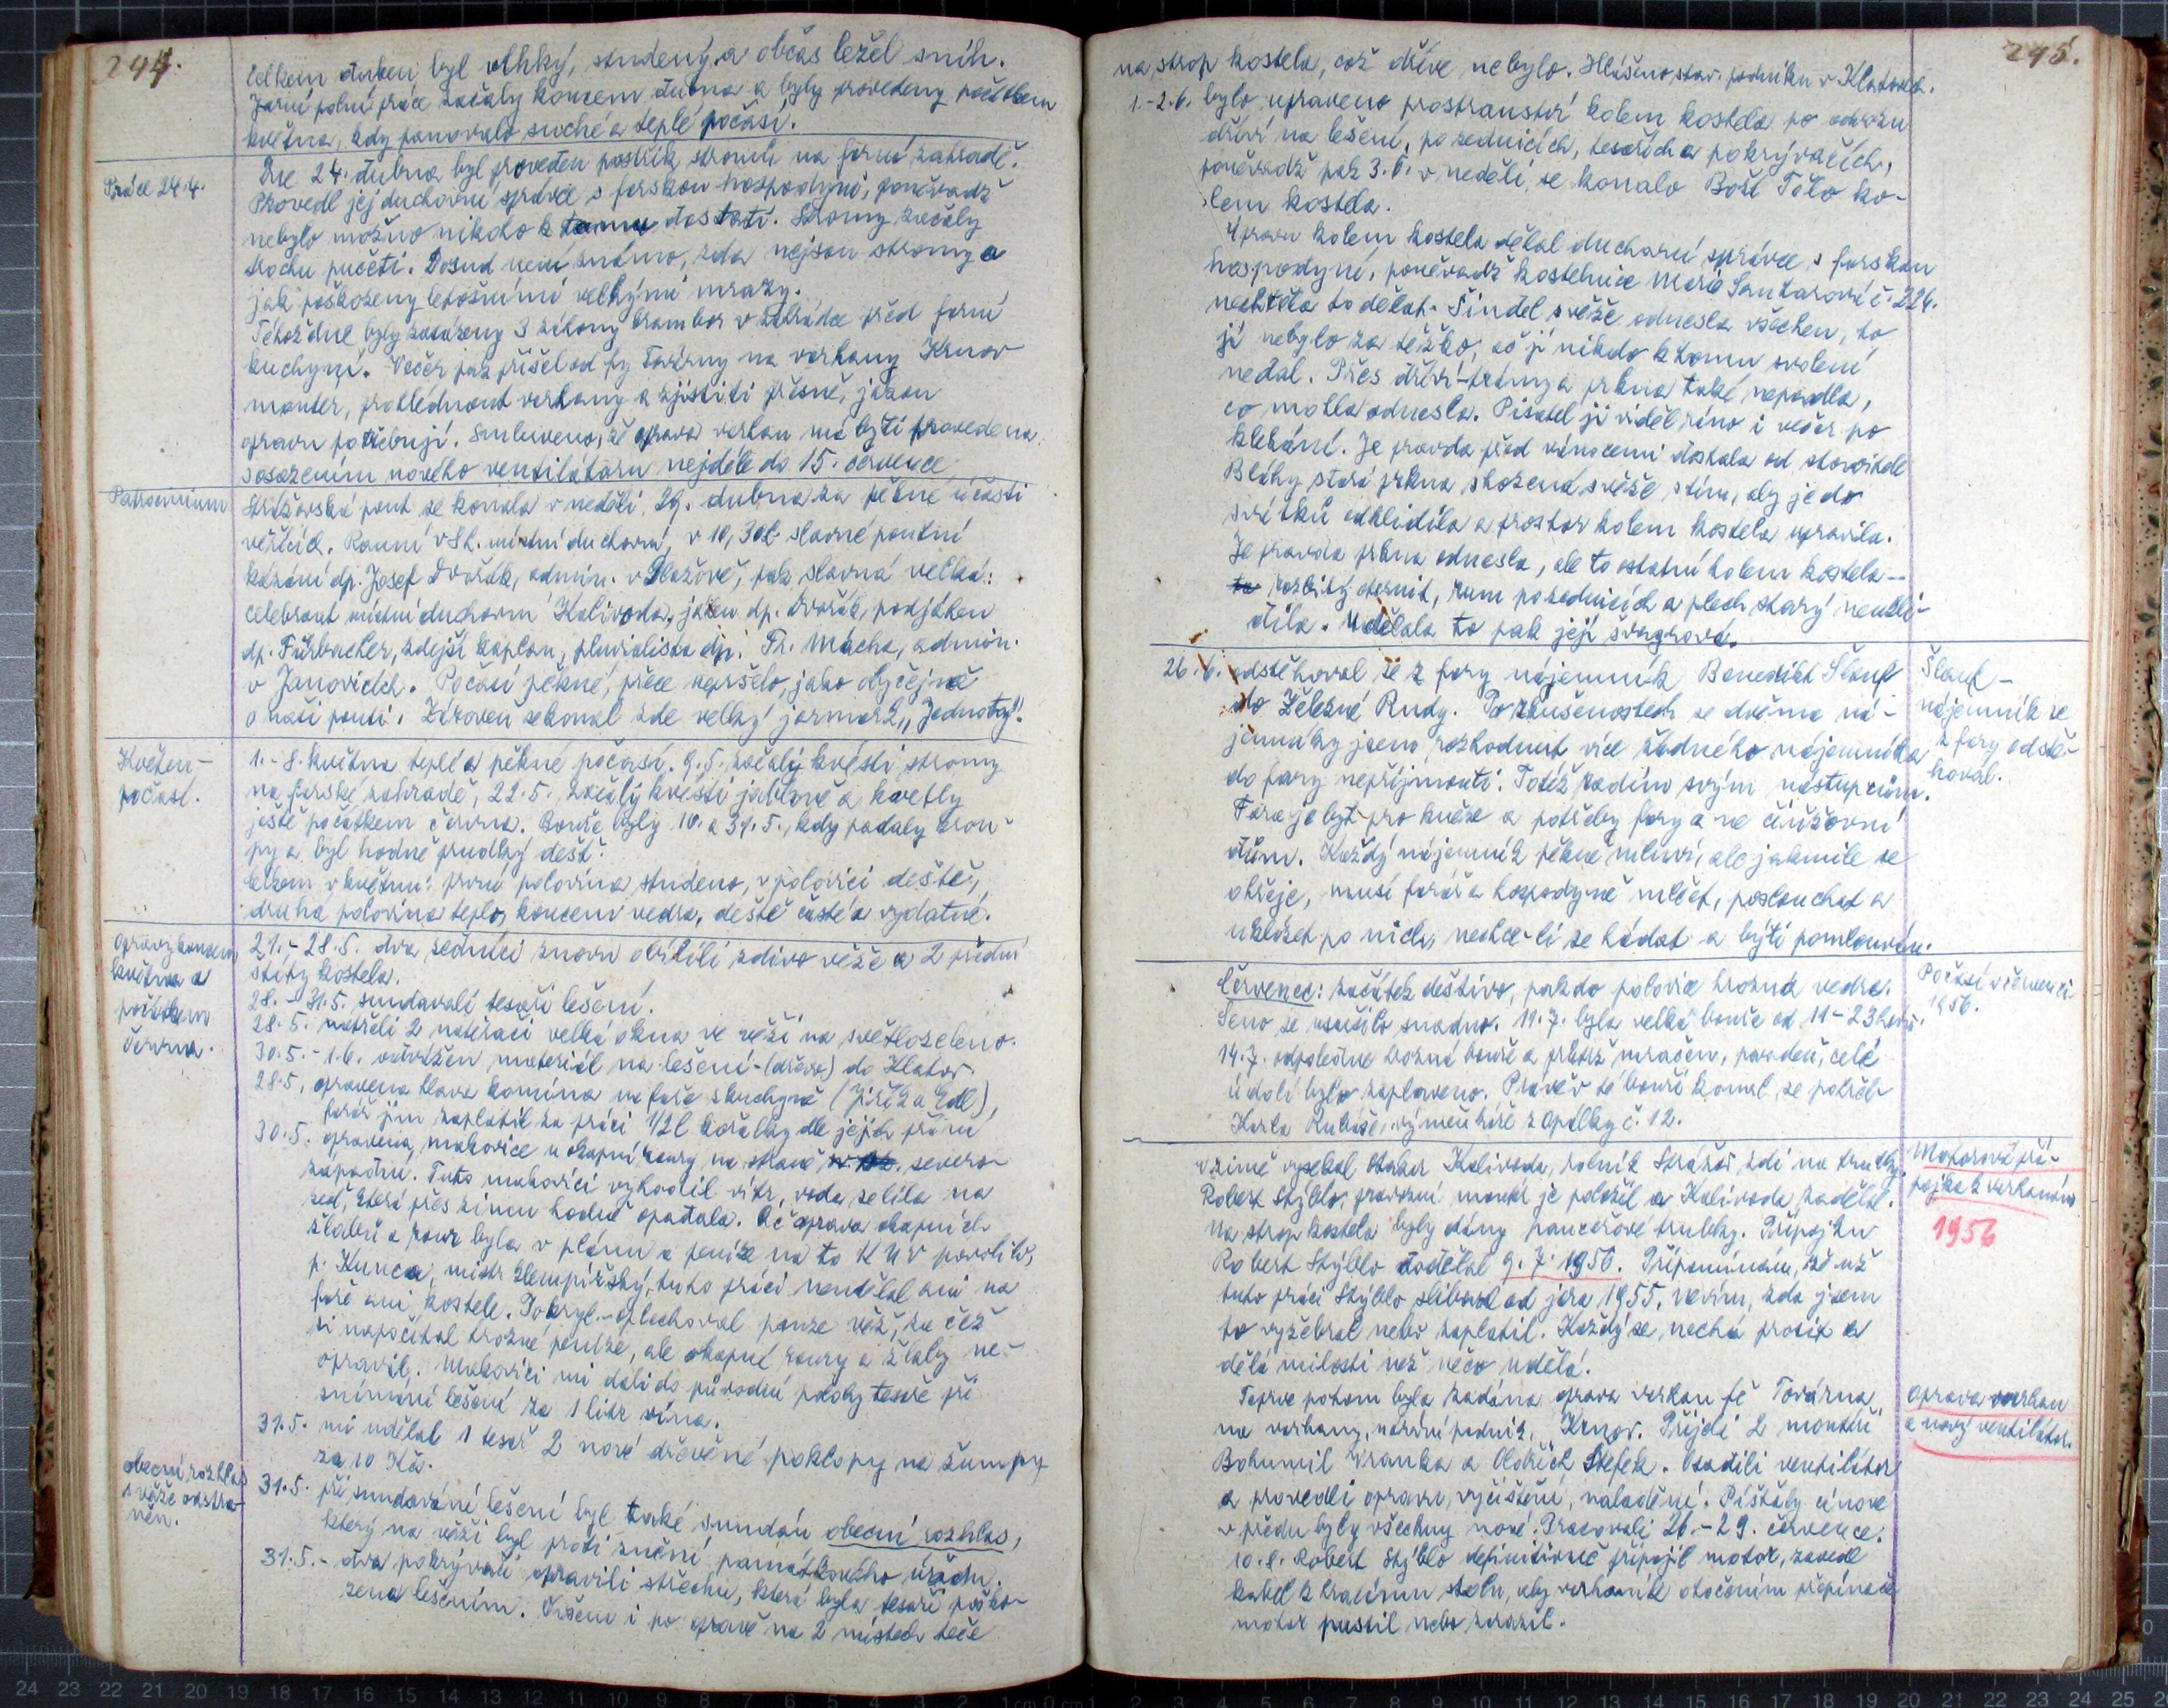 244.
Celkem duben byl vlhký, studený a občas ležel sníh.
Jarní polní práce začaly koncem dubna a byly provedeny počátkem
května, kdy panovalo suché a teplé počasí.
Práce 24.4.
Dne 24. dubna byl proveden postřik stromů na farní zahradě.
Provedl jej duchovní správce s farskou hospodyní, poněvadž
nebylo možno nikoho k tomu dostati. Stromy začaly
trochu pučeti. Dosud není známo, zda nejsou stromy a
jak poškozeny letošními velkými mrazy.
Téhož dne byly zasázeny 3 záhony brambor v zahrádce před farní
kuchyní. Večer pak přišel od fy Továrny na varhany Krnov
monter, prohlédnout varhany a zjistiti přesně, jakou
opravu potřebují. Smluveno, že oprava varhan má býti provedena
s osazením nového ventilátoru nejdéle do 15. července
Patrocinium
Strážovská pout se konala v neděli 29. dubna za pěkné účasti
věřících. Ranní v 8h. místní duchovní, v 10,30h. slavné poutní
kázání dp. Josef Dvořák, admin. v Dlažově, pak slavná velká:
celebrant místní duchovní Kalivoda, jáhen dp. Dvořák, podjáhen
dp. Fürbacher, zdejší kaplan, pluvialista dp. Fr. Mácha, admin.
v Janovicích. Počasí pěkné, přece nepršelo, jako obyčejně
o naší pouti. Zároveň se konal zde velký jarmark „Jednoty".
Květen -
počasí.
1.-8. května teplé a pěkné počasí. 9.5. začaly kvésti stromy
na farské zahradě, 22.5. začaly kvésti jabloně a kvetly
ještě počátkem června. Bouře byly 10. a 31.5., kdy padaly krou-
py a byl hodně prudký déšť.
Celkem v květnu: první polovina studeno, v polovici deště,
druhá polovina teplo, koncem vedra, deště časté a vydatné.
Opravy koncem
května a
počátkem
června.
21.-28.5. dva zedníci znovu obílili zdivo věže a 2 přední
štíty kostela.
28.-31.5. sundavali tesaři lešení.
28.5. natřeli 2 natěrači velká okna ve věži na světlozeleno.
30.5.-1.6. odvážen materiál na lešení-(dřevo) do Klatov
28.5. opravena hlava komína na faře z kuchyně (Jiřík a Edl),
farář jim zaplatil za práci 1/2 l kořalky dle jejich přání
30.5. opravena makovice u okapní roury na straně severo-
západní. Tuto makovici vyhodil vítr, voda se lila na
zeď, která přes zimu hodně opadala. Ač oprava okapních
žlabů a rour byla v plánu a peníze na to KNV povolil,
p. Kunca, mistr klempířský, tuto práci neudělal ani na
faře ani kostele. Pokryl-oplechoval pouze věž, za čež
si napočítal hrozné peníze, ale okapní roury a žlaby ne-
opravil. Makovici mi dali do původní polohy tesaře při
snímání lešení za 1 litr vína.
31.5. mi udělal 1 tesař 2 nové dřevěné poklopy na žumpy
za 10 Kčs.
obecní rozhlas
s věže odstra-
něn.
31.5. při sundavání lešení byl také sundán obecní rozhlas,
který na věži byl proti znění památkového úřadu.
31.5.- dva pokrývači opravili střechu, která byla tesaři poško-
zena lešením. Ovšem i po opravě na 2 místech teče
245.
na strop kostela, což dříve nebylo. Hlášeno stav. podniku v Klatovech.
1.-2.6. bylo upraveno prostranství kolem kostela po odvozu
dříví na lešení, po zednících, tesařích a pokrývačích,
poněvadž pak 3.6. v neděli, se konalo Boží Tělo ko-
lem kostela.
Úpravu kolem kostela dělal duchovní správce s farskou
hospodyní, poněvadž kostelnice Marie Santarová č. 224.
nechtěla to dělat. Šindel s věže odnesla všechen, to
jí nebylo za těžko, ač jí nikdo k tomu svolení
nedal. Přes dříví-trámy a prkna také nepadla,
co mohla odnesla. Pisatel ji viděl ráno i večer po
klekání. Je pravda před vánocemi dostala od stavitele
Bláhy stará prkna shozená s věže s tím, aby je do
svátků odklidila a prostor kolem kostela upravila.
Je pravda prkna odnesla, ale to ostatní kolem kostela--
rozbitý eternit, rum po zednících a plech starý neukli-
dila. Udělala to pak její švagrová.
26.6. odstěhoval se z fary nájemník Benedikt Šlauf
do Železné Rudy. Po zkušenostech se dvěma ná-
jemníky jsem rozhodnut více žádného nájemníka
do fary nepřijmouti. Totéž radím svým nástupcům.
Fara je byt pro kněze a potřeby fary a ne činžovní
dům. Každý nájemník pěkně mluví, ale jakmile se
ohřeje, musí farář a hospodyně mlčet, poslouchat a
uklízet po nich, nechce-li se hádat a býti pomlouván.
Šlauf -
nájemník se
z fary odstě-
hoval.
Červenec: začátek deštivo, pak do polovice hrozná vedra.
Seno se usušilo snadno. 11.7. byla velká bouře od 11-23 hod.
14.7. odpoledne hrozná bouře a průtrž mračen, povodeň, celé
údolí bylo zaplaveno. Právě v té bouři konal se pohřeb
Karla Kubáše, výměnkáře z Opálky č. 12.
Počasí v červenci
1956.
V zimě vysekal Otakar Kalivoda, rolník Strážov, zdi na trubky
Robert Stýblo, provozní montér je položil a Kalivoda zadělal.
Na strop kostela byly dány pancéřové trubky. Přípojku
Robert Stýblo dodělal 9.7.1956. Připomínám, že už
tuto práci Stýblo sliboval od jara 1955, nevím, zda jsem
to vyžebral nebo zaplatil. Každý se nechá prosit a
dělá milosti než něco udělá.
Motorová pří-
pojka k varhanám
1956
Teprve potom byla zadána oprava varhan fě Továrna
na varhany, národní podnik, Krnov. Přijeli 2 montéři
Bohumil Vranka a Oldřich Štefek. Osadili ventilátor
a provedli opravu, vyčištění, naladění. Píšťaly cínové
v předu byly všechny nové. Pracovali 26.-29. července.
10.8. Robert Stýblo definitivně připojil motor, zavedl
kabel k hracímu stolu, aby varhaník otočením přepínače
motor pustil nebo zarazil.
Oprava varhan
a nový ventilátor.